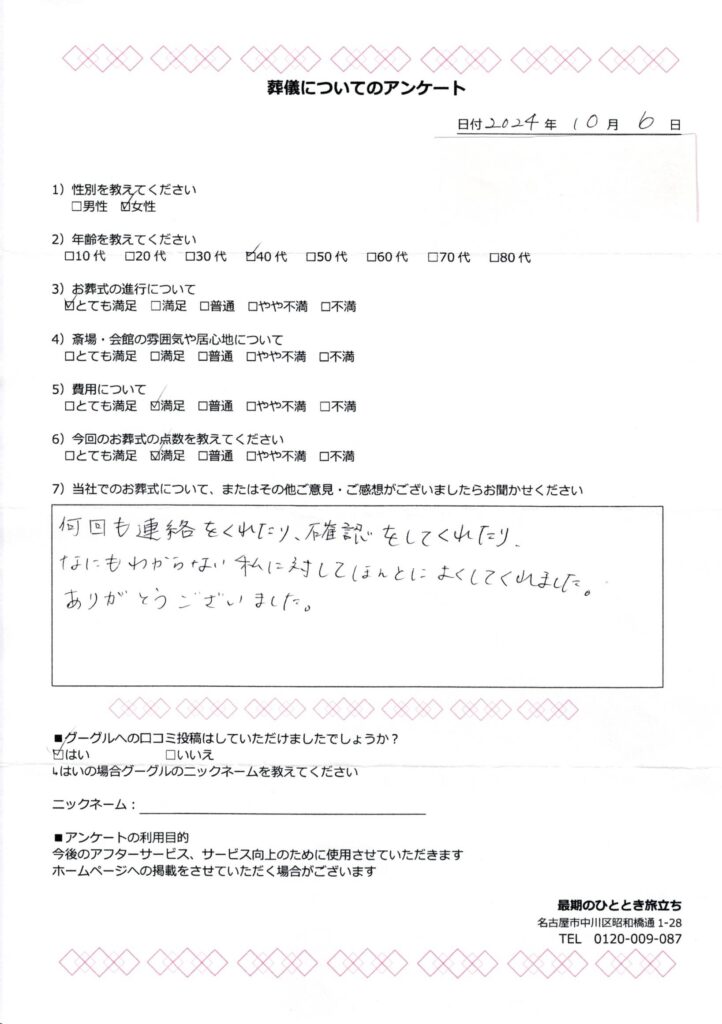 葬儀についてのアンケート
日付 2024 年 10 月 6 日
1）性別を教えてください
□男性 ☑女性
2）年齢を教えてください
□10 代 □20 代 □30 代 ☑40 代 □50 代 □60 代 □70 代 □80 代
3）お葬式の進行について
☑とても満足 □満足 □普通 □やや不満 □不満
4）斎場・会館の雰囲気や居心地について
□とても満足 □満足 □普通 □やや不満 □不満
5）費用について
□とても満足 ☑満足 □普通 □やや不満 □不満
6）今回のお葬式の点数を教えてください
□とても満足 ☑満足 □普通 □やや不満 □不満
7）当社でのお葬式について、またはその他ご意見・ご感想がございましたらお聞かせください
何回も連絡をくれたり、確認をしてくれたり、
なにもわからない私に対してほんとによくしてくれました。
ありがとうございました。
■グーグルへの口コミ投稿はしていただけましたでしょうか？
☑はい □いいえ
↳はいの場合グーグルのニックネームを教えてください
ニックネーム：
■アンケートの利用目的
今後のアフターサービス、サービス向上のために使用させていただきます
ホームページへの掲載をさせていただく場合がございます
最期のひととき旅立ち
名古屋市中川区昭和橋通 1-28
TEL 0120-009-087